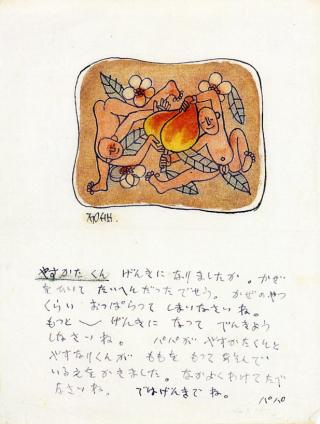 やすかた くん げんきに なりましたか。かぜ
を ひいて たいへん だったでせう。かぜのやつ
くらい おっぱらって しまいなさいね。
もっと げんきに なって べんきょう
しなさいね。 パパが やすかたくんと
やすなりくんが ももを もって あそんで
いるえを かきました。なかよくわけてたべ
なさいね。 でわげんきでね。
パパ